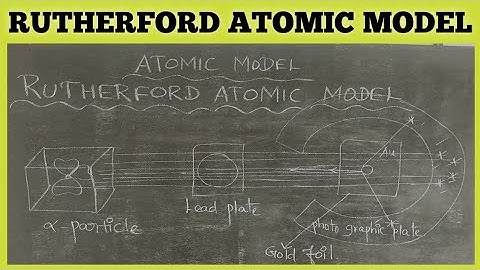 RUTHERFORD ATOMIC MODEL
ATOMIC MODEL
RUTHERFORD ATOMIC MODEL
Au
α-particle
Lead plate
photo graphic plate
Gold foil.